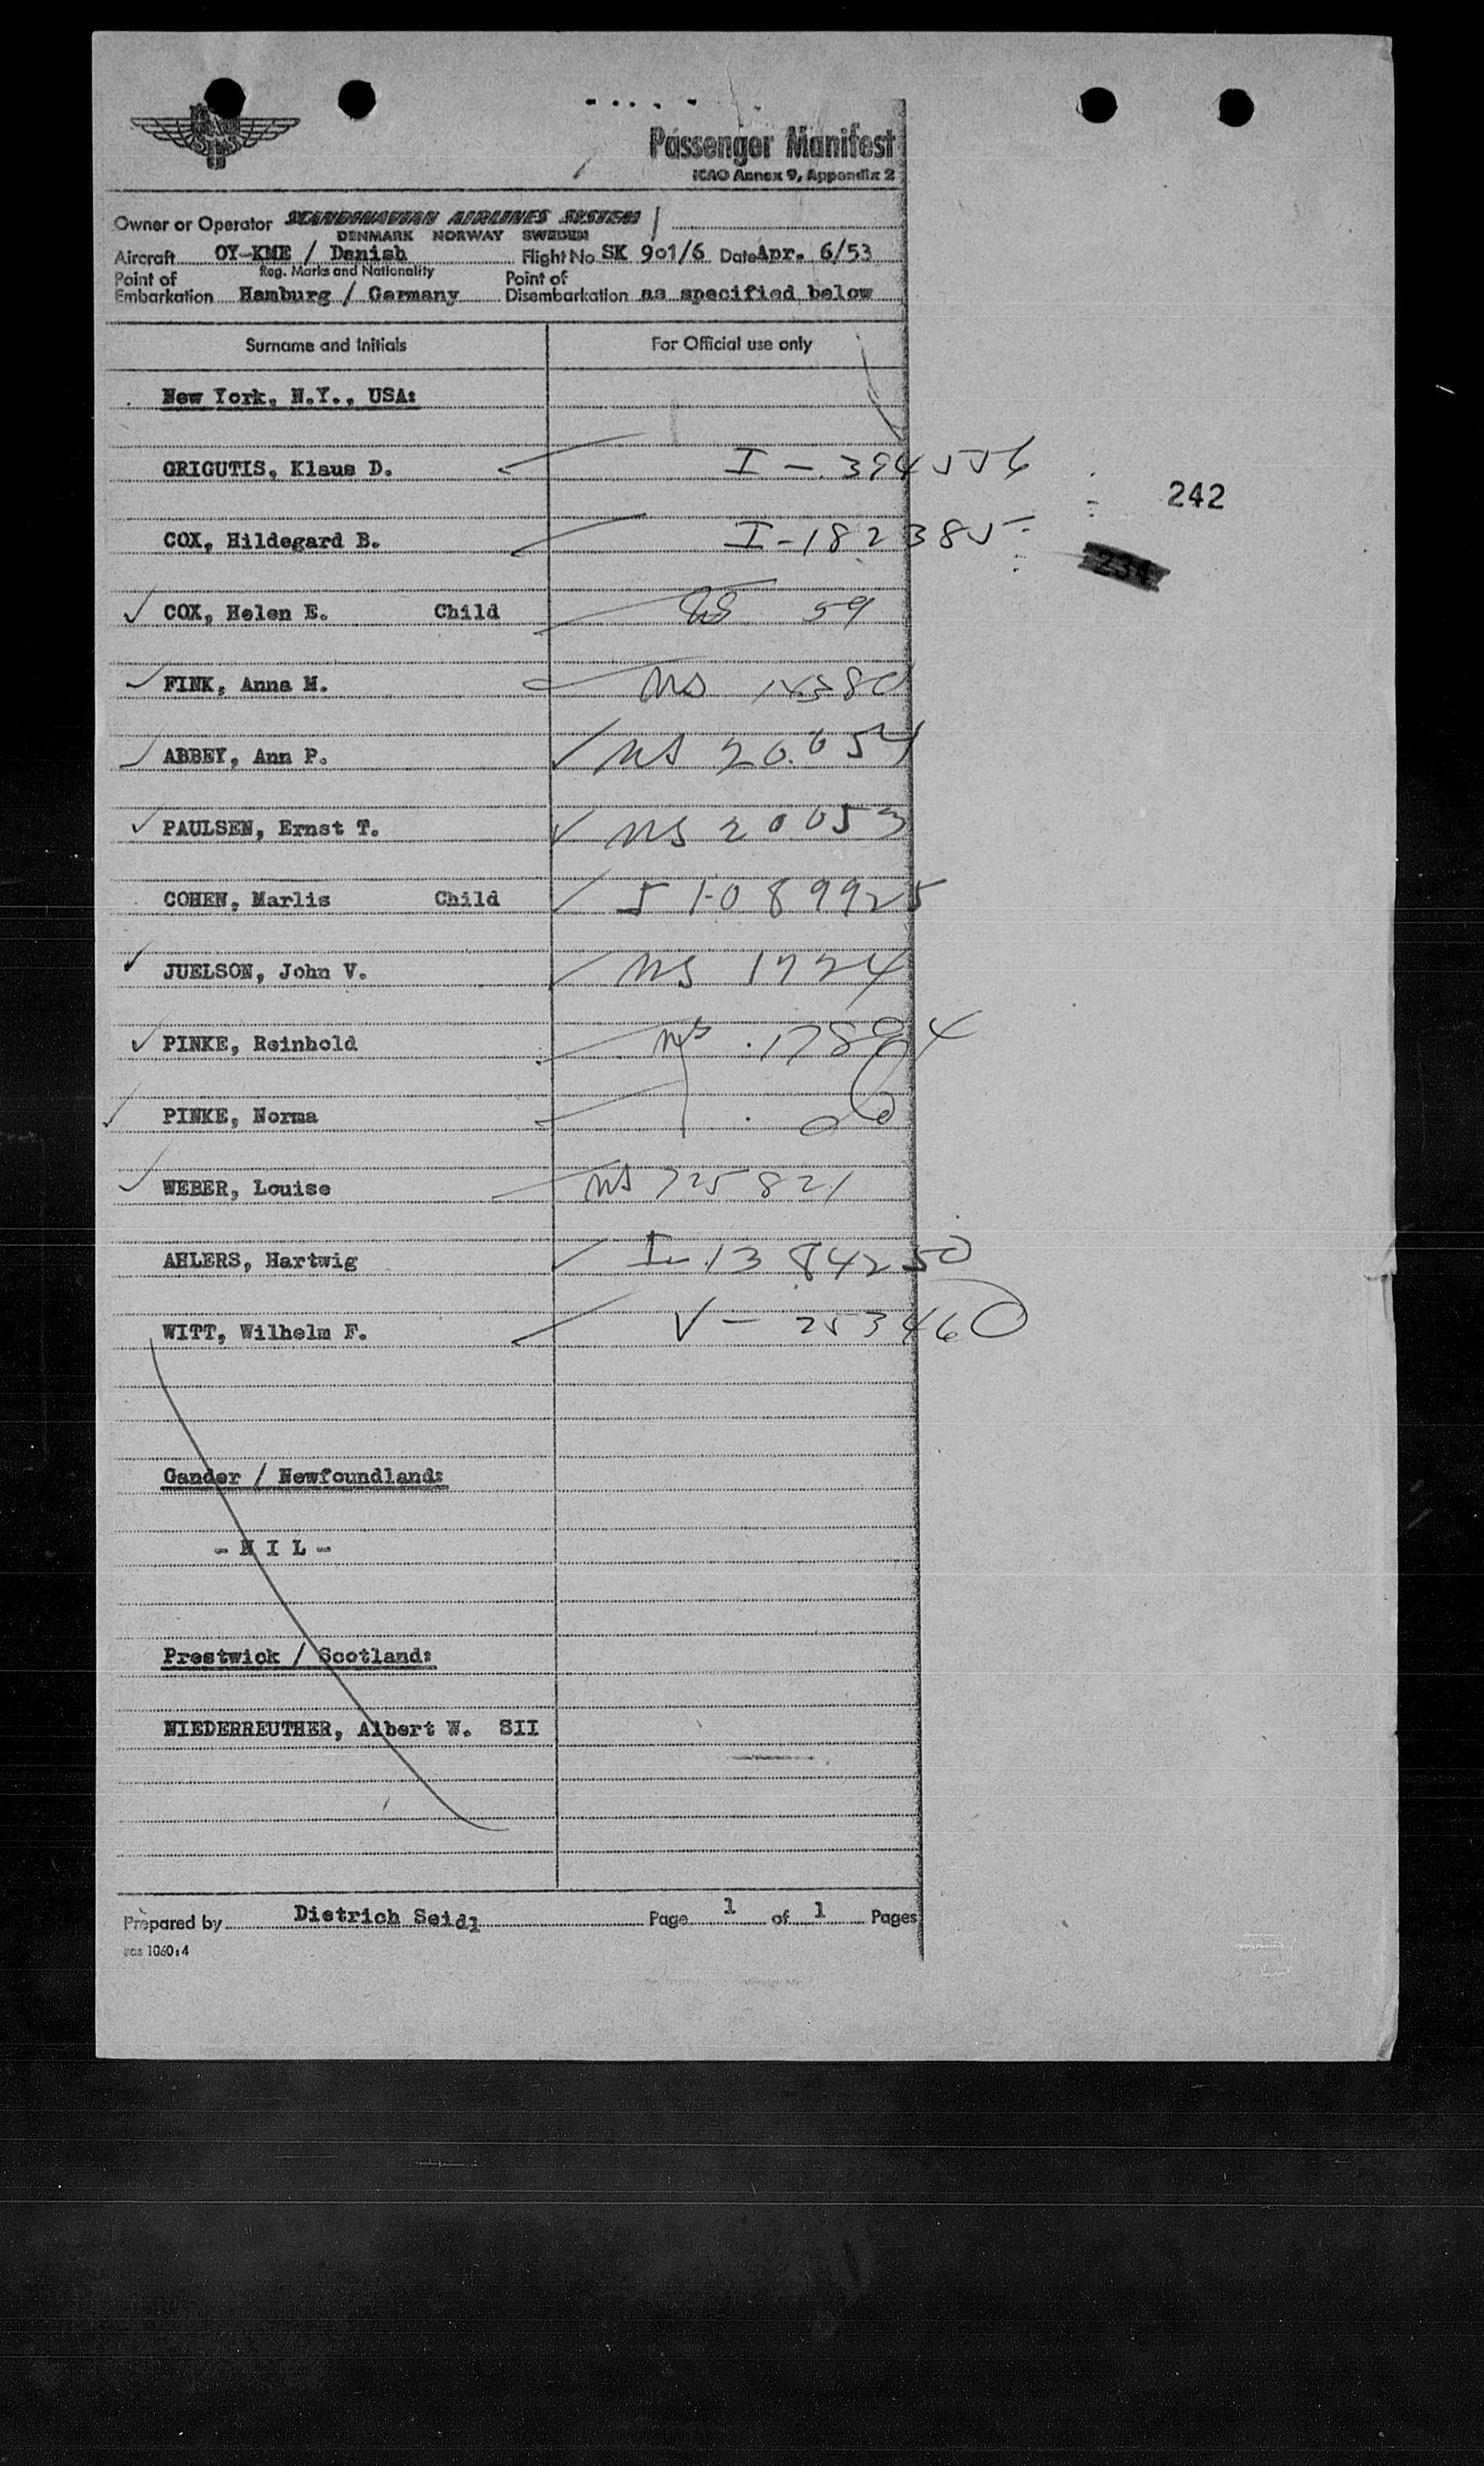 Passenger Manifest
ICAO Annex 9, Appendix 2
Owner or Operator SCANDINAVIAN AIRLINES SYSTEM
DENMARK NORWAY SWEDEN
Aircraft OY-KME / Danish Flight No SK 901/6 Date Apr. 6/53
Reg. Marks and Nationality
Point of Embarkation Hamburg / Germany Point of Disembarkation as specified below
Surname and Initials For Official use only
New York, N.Y., USA:
GRIGUTIS, Klaus D. I - 394556
242
COX, Hildegard B. I-1823855
COX, Helen E. Child 59
FINK, Anna M. NS 14380
ABBEY, Ann P. NS 20054
PAULSEN, Ernst T. NS 20053
COHEN, Marlis Child 51-089925
JUELSON, John V. NS 1724
PINKE, Reinhold NS 17894
PINKE, Norma
WEBER, Louise NS 725821
AHLERS, Hartwig I-1384250
WITT, Wilhelm F. V - 253460
Gander / Newfoundland:
- N I L -
Prestwick / Scotland:
NIEDERREUTHER, Albert W. SII
Prepared by Dietrich Seidl Page 1 of 1 Pages
sas 1060:4